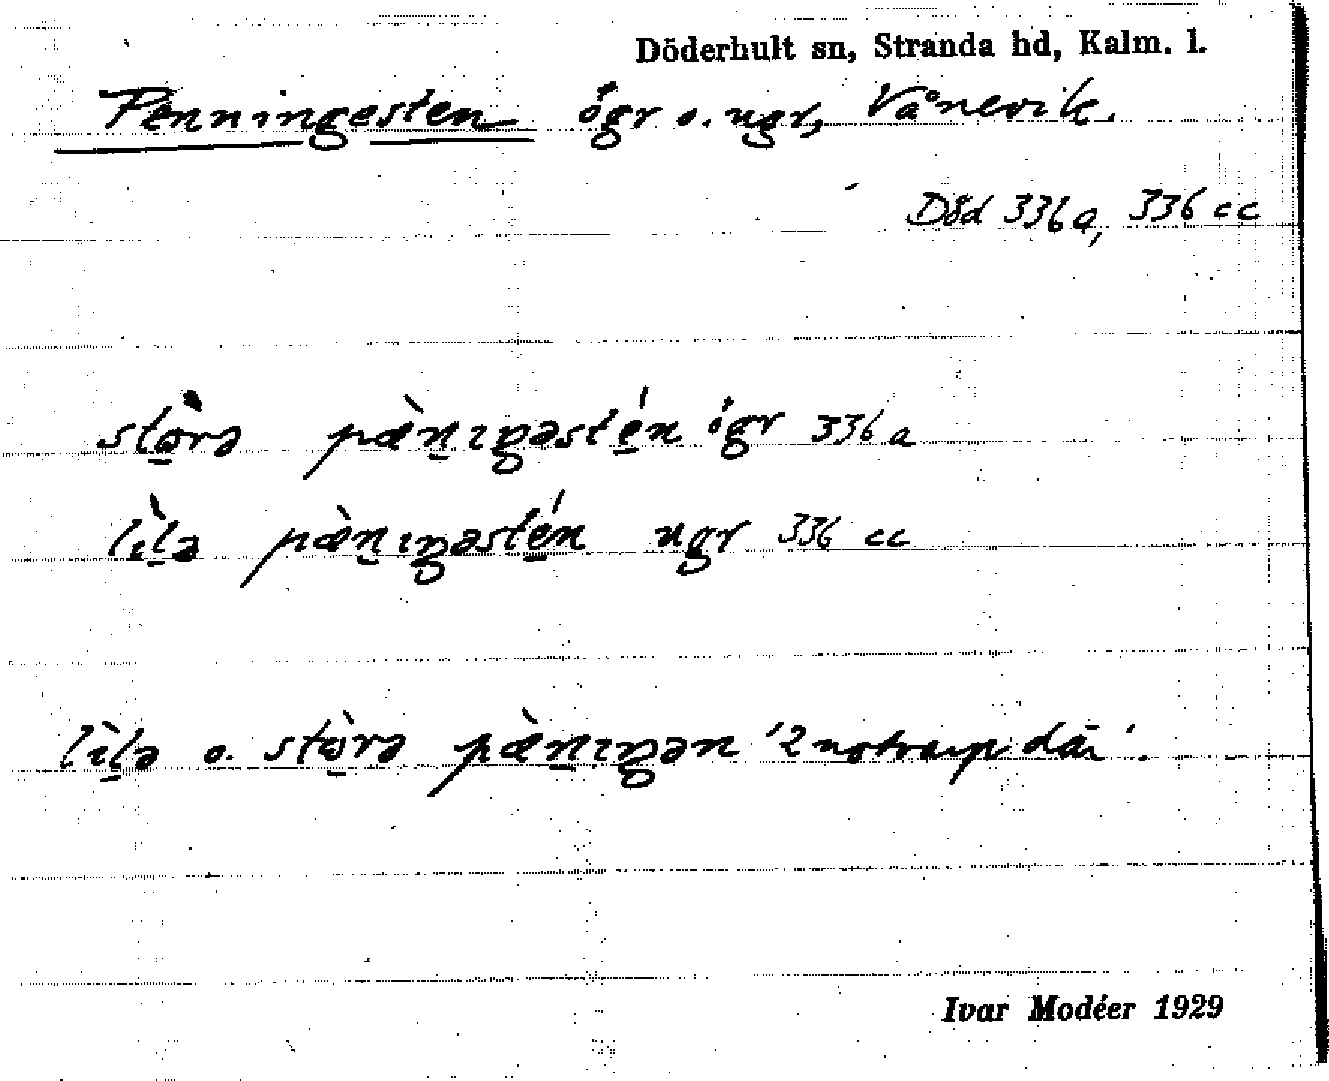 Döderhult sn, Stranda hd, Kalm. l.
Penningesten ögr o. ugr, Vånevik.
Död 336a, 336 cc
stò̱rə pæ̀ṉıŋəsté̱n ögr 336 a
lı̀ḻə pæ̀ṉıŋəsté̱n ugr 336 cc
lı̀ḻə o. stò̱rə pæ̀ṉıŋən '2 notvarp där'.
Ivar Modéer 1929